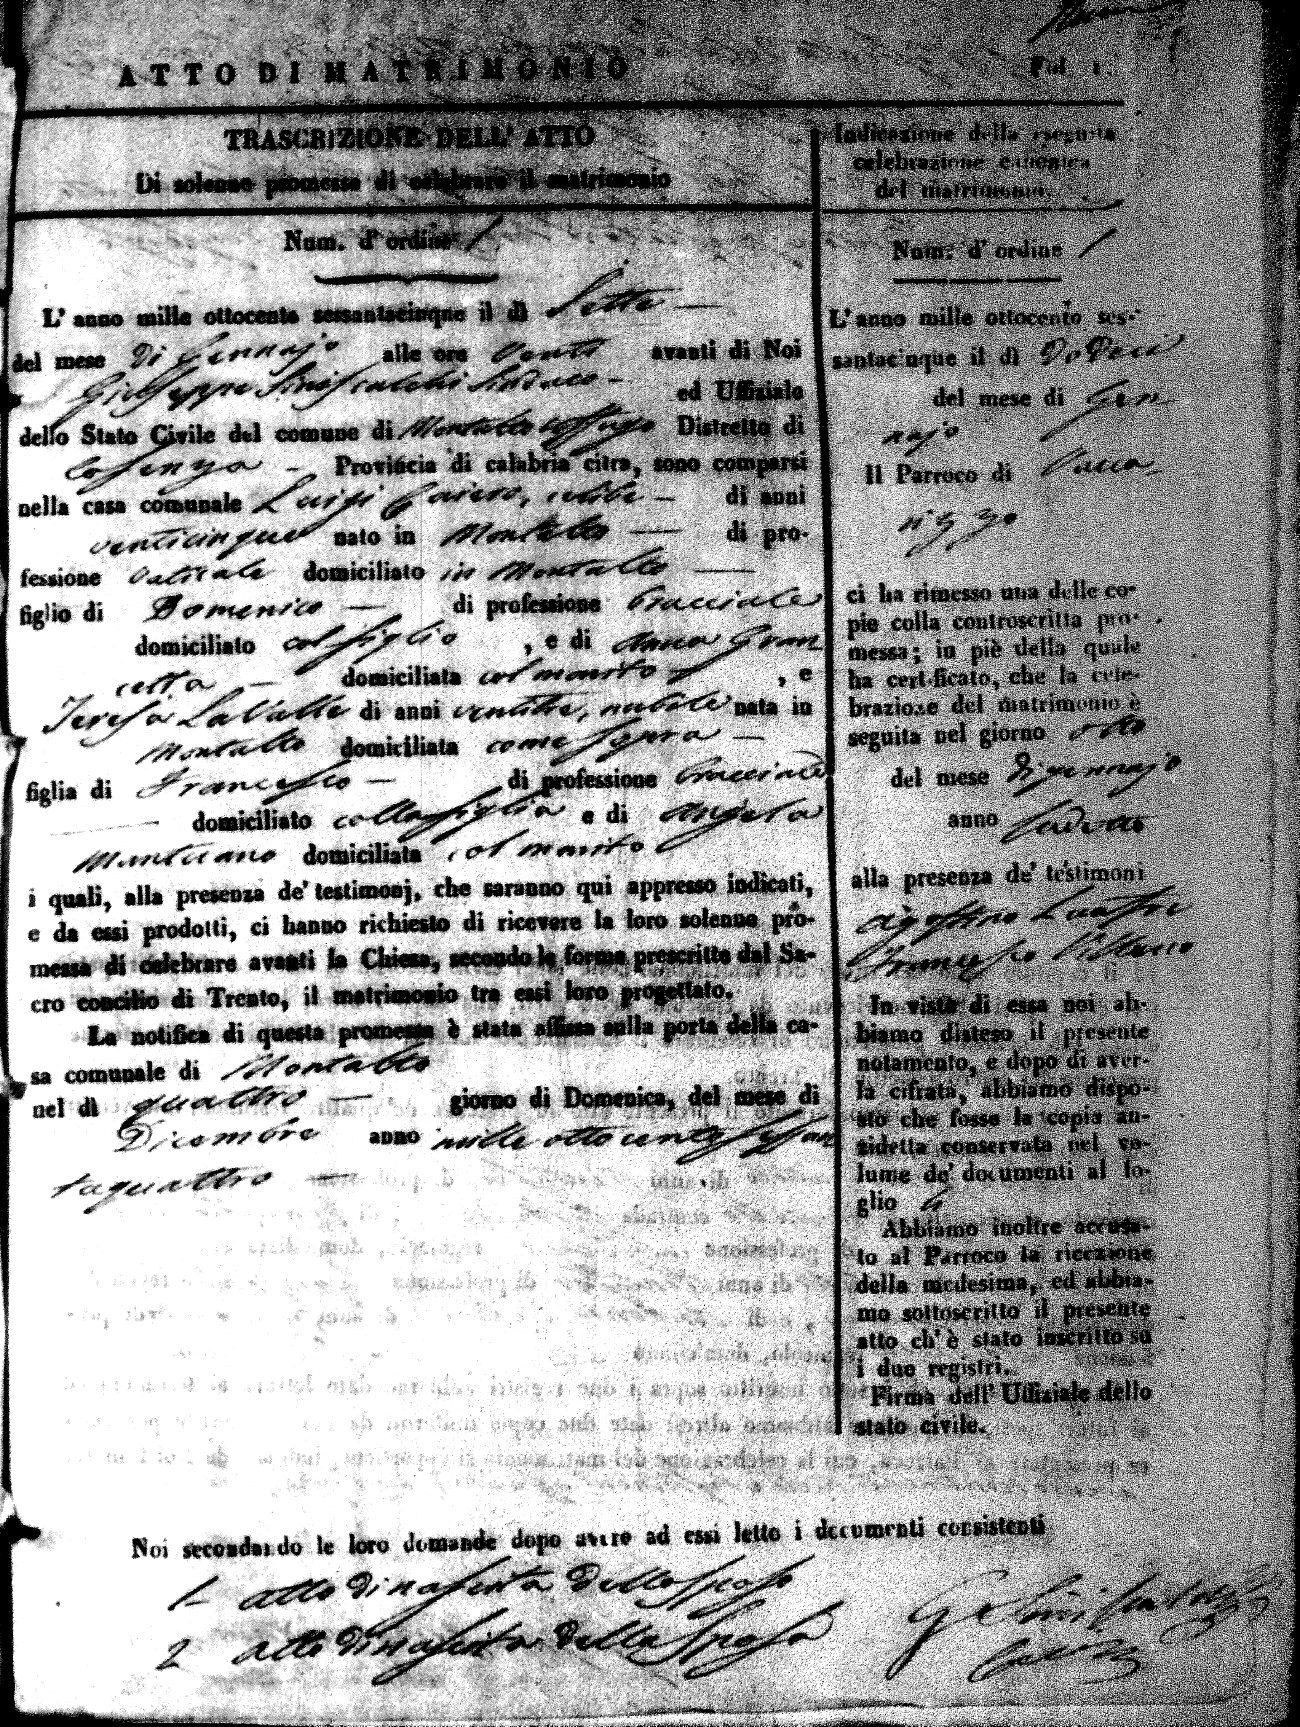 ATTO DI MATRIMONIO
Fol 1
TRASCRIZIONE DELL' ATTO
Di solenne promessa di celebrare il matrimonio
Num. d' ordine 1
L' anno mille ottocento sessantacinque il dì Sette
del mese di Gennajo alle ore venti avanti di Noi
Giuseppe Siniscalchi Sindaco ed Uffiziale
dello Stato Civile del comune di Montalto Uffugo Distretto di
Cosenza Provincia di calabria citra, sono comparsi
nella casa comunale Luigi celibe di anni
venticinque nato in Montalto di pro-
fessione domiciliato in Montalto
figlio di Domenico di professione bracciale
domiciliato col figlio , e di Anna Gran
cetta domiciliata col marito , e
Teresa La Valle di anni ventitre, nubile nata in
Montalto domiciliata come sopra
figlia di Francesco di professione bracciale
domiciliato colla figlia e di Angela
domiciliata col marito
i quali, alla presenza de' testimonj, che saranno qui appresso indicati,
e da essi prodotti, ci hanno richiesto di ricevere la loro solenne pro-
messa di celebrare avanti la Chiesa, secondo le forme prescritte dal Sa-
cro concilio di Trento, il matrimonio tra essi loro progettato.
La notifica di questa promessa è stata affissa sulla porta della ca-
sa comunale di Montalto
nel dì quattro giorno di Domenica, del mese di
Dicembre anno mille ottocentosessan
taquattro
Indicazione della seguita
celebrazione canonica
del matrimonio.
Num. d' ordine 1
L' anno mille ottocento ses-
santacinque il dì Dodeci
del mese di Gen
najo
Il Parroco di Vacca
rizzo
ci ha rimesso una delle co-
pie colla controscritta pro-
messa; in piè della quale
ha certificato, che la cele-
brazione del matrimonio è
seguita nel giorno otto
del mese di gennajo
anno
alla presenza de' testimoni
Francesco
In vista di essa noi ab-
biamo disteso il presente
notamento, e dopo di aver-
la cifrata, abbiamo dispo-
sto che fosse la copia an-
zidetta conservata nel vo-
lume de' documenti al fo-
glio
Abbiamo inoltre accusa-
to al Parroco la ricezione
della medesima, ed abbia-
mo sottoscritto il presente
atto ch' è stato inscritto su
i due registri.
Firma dell' Uffiziale dello
stato civile.
Noi secondando le loro domande dopo avere ad essi letto i documenti consistenti
1 atto di nascita dello sposo
2 atto di nascita della sposa